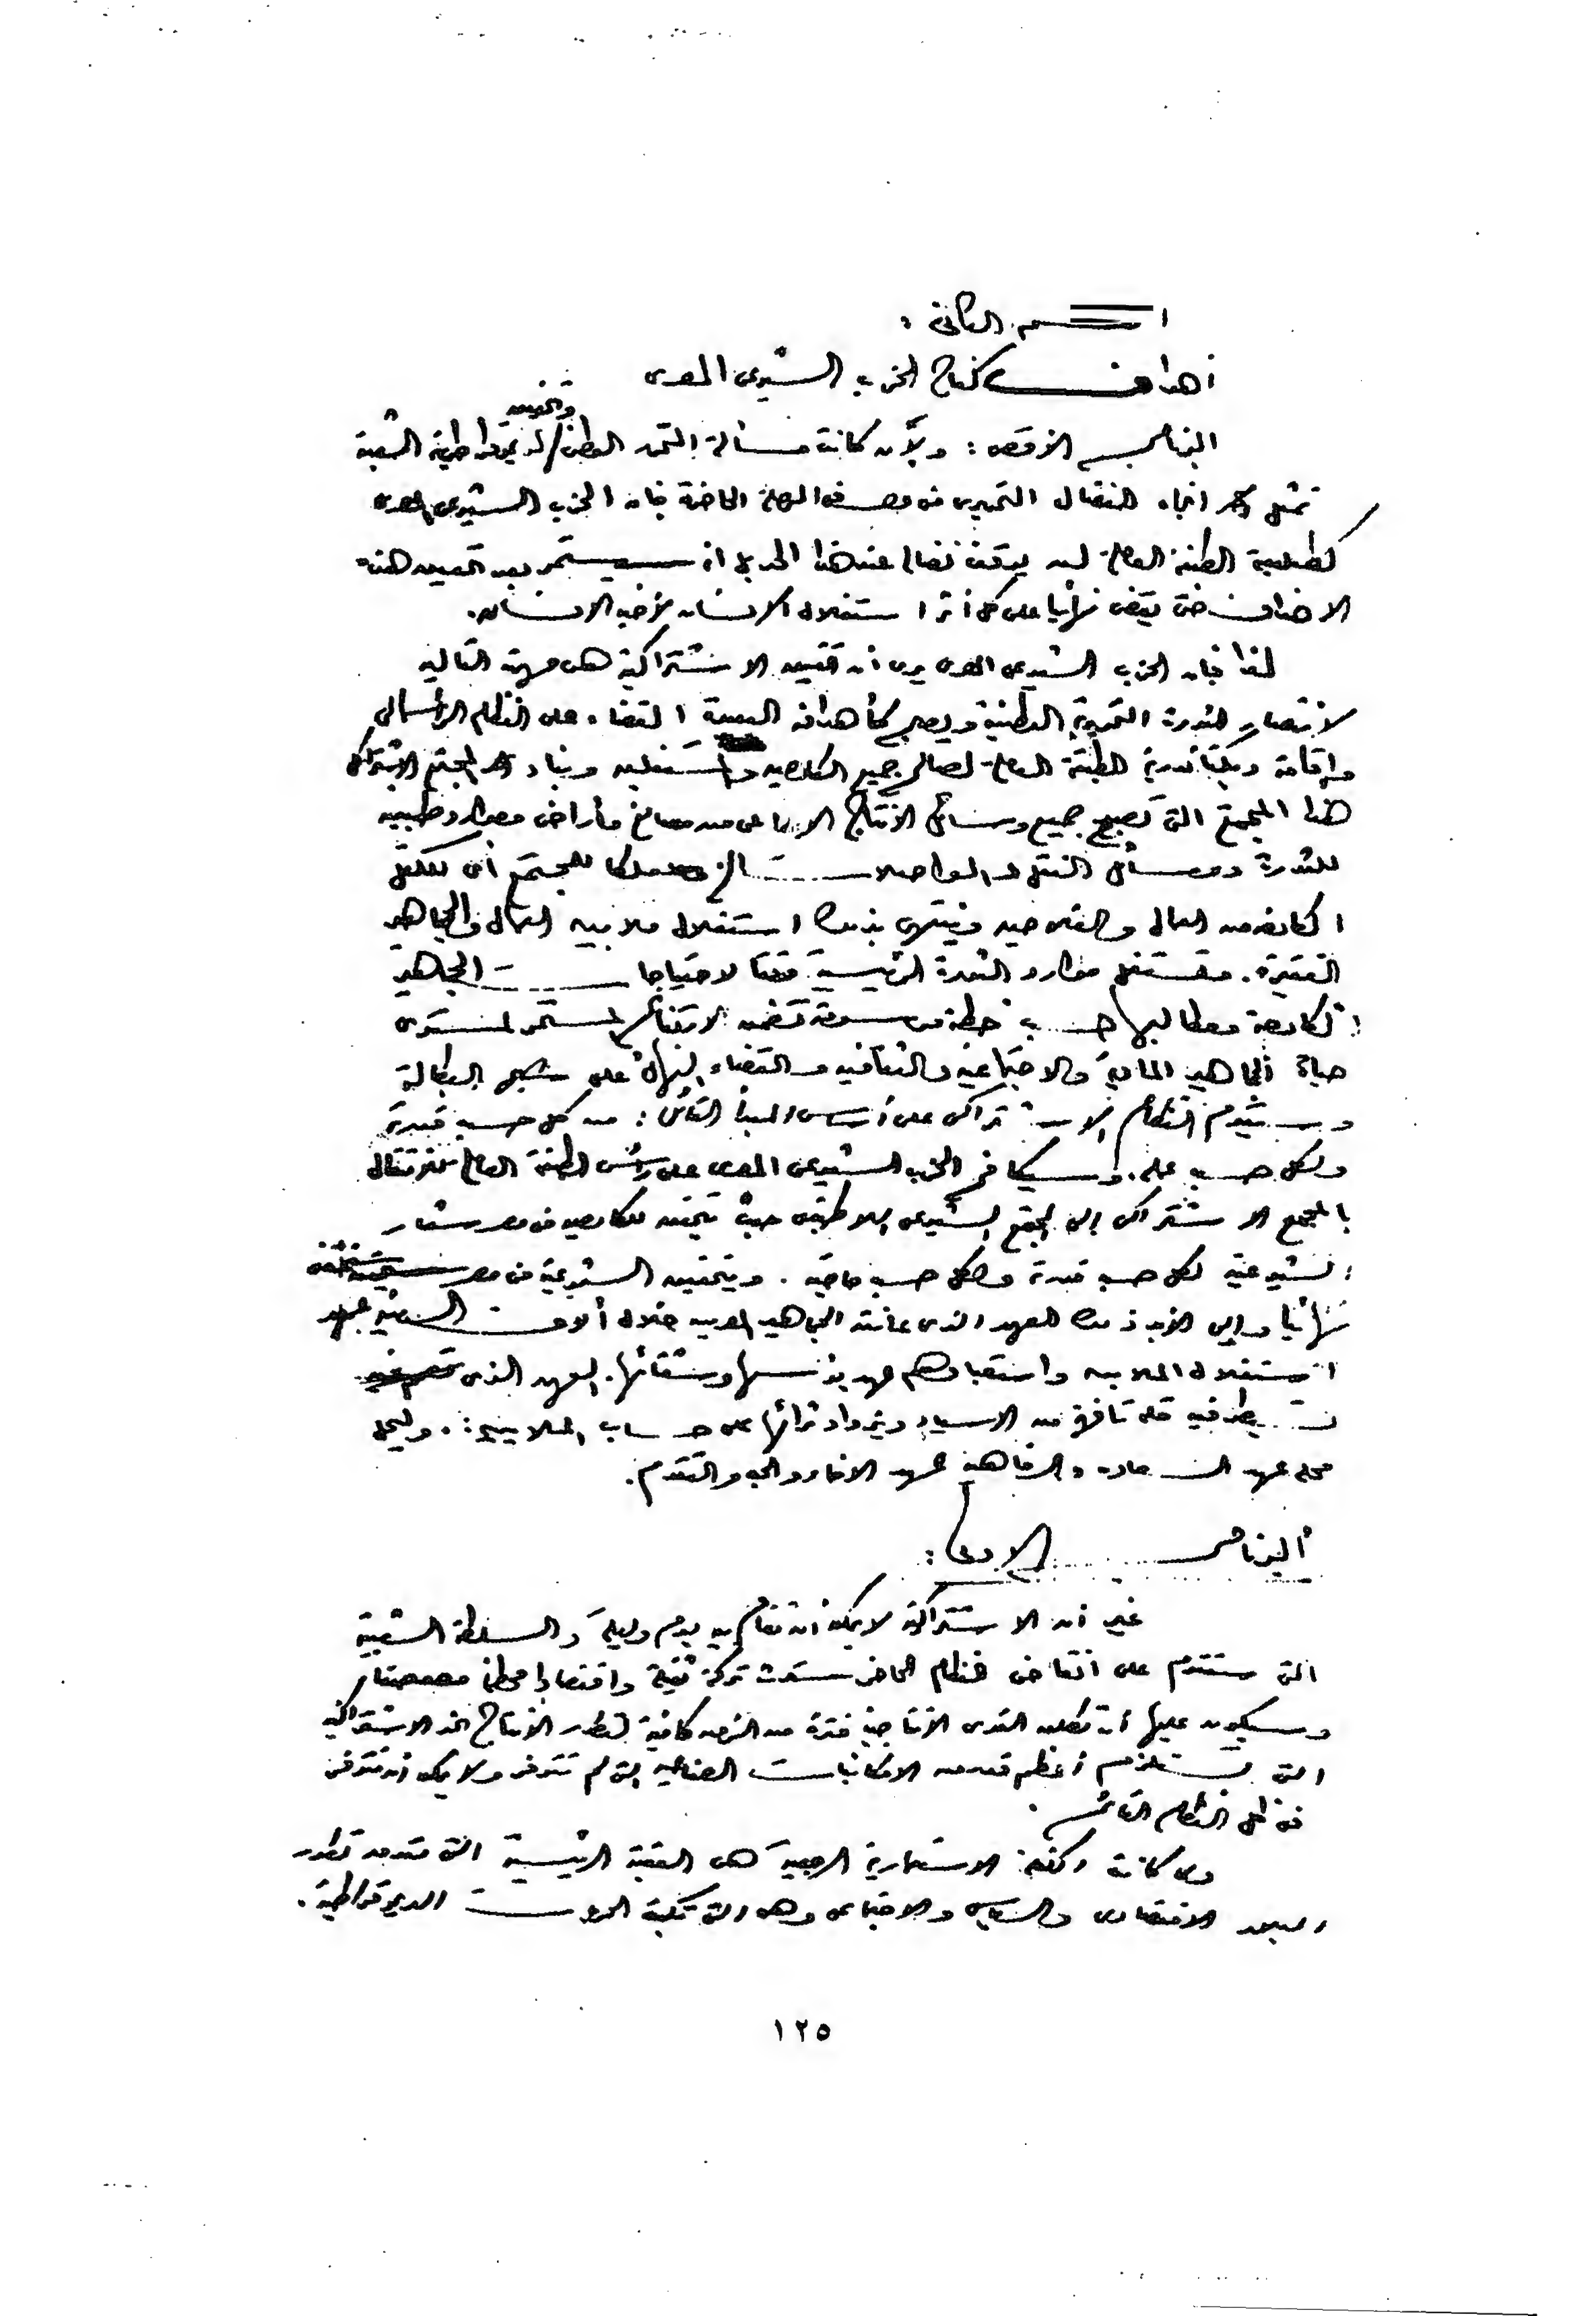 القسم الثانى :
أهداف كفاح الحزب الشيوعى المصرى
البرنامج الأقصى : ولأن كانت مسألة التحرر الوطنى / وتحقيق الديموقراطية الشعبية
تمثل اتجاه النضال التحررى فى مصر فى المرحلة الحاضرة فان الحزب الشيوعى المصرى
كطليعة الطبقة العاملة لن يوقف نضاله عند هذا الحد بل انه سيستمر بعد تحقيق هذه
الاهداف حتى يقضى نهائيا على كل أثر لاستغلال الانسان لأخيه الانسان.
لهذا فان الحزب الشيوعى المصرى يرى أن تحقيق الاشتراكية هى مهمته التالية
لانتصار الثورة التحررية الوطنية ويصبح كأهدافه القضاء على النظام الرأسمالى
وإقامة ديكتاتورية الطبقة العاملة لصالح جميع الكادحين والمستغلين وبناء المجتمع الاشتراكى
هذا المجتمع التى تصبح جميع وسائل الانتاج الاجتماعى من مصانع وأراضى وموارد طبيعية
للثروة ووسائل النقل والمواصلات الخ ملكا للمجتمع أى ككل
الكادحة من العمال والفلاحين وينتهى بذلك استغلال ملايين العمال والجماهير
الفقيرة. وتستغل موارد الثروة الرئيسية وفقا لاحتياجات الجماهير
الكادحة ومطالبها حسب خطة مرسومة تضمن الارتفاع المستمر لمستوى
حياة الجماهير المادية والاجتماعية والثقافية والقضاء نهائيا على شبح البطالة
وسيقوم النظام الاشتراكى على أساس المبدأ القائل : من كل حسب قدرته
ولكل حسب عمله. وسيكافح الحزب الشيوعى المصرى على رأس الطبقة العاملة للانتقال
بالمجتمع الاشتراكى إلى المجتمع الشيوعى اللاطبقى حيث يتحقق للكادحين فى مصر شعار
الشيوعية لكل حسب قدرته ولكل حسب حاجته. وبتحقيق الشيوعية فى مصر
نهائيا وإلى الأبد ذلك العهد الذى عانته الجماهير المصرية خلال ألاف السنين عهد
استغلال الملايين واستعبادهم عهد بؤسها وشقائها. العهد الذى
تسيطر فيه قلة تافهة من الاسياد ويزداد ثرائها على حساب الملايين. وليحل
محله عهد السعادة والرفاهية عهد الاخاء والحب والتقدم.
البرنامج الأدنى :
غير أن الاشتراكية لا يمكن أن تقام بين يوم وليلة والسلطة الشعبية
التى ستقوم على انقاض النظام الحاضر سترث تركة ثقيلة واقتصادا محطما
وسيكون عليها أن تطلق القوى الانتاجية فترة من الزمن كافية لتطور الانتاج نحو الاشتراكية
التى تستلزم أعظم قدر من الامكانيات الصناعية التى لم تتوفر ولا يمكن أن تتوفر
فى ظل النظام القائم.
ولما كانت الكتلة الاستعمارية الرجعية هى العقبة الرئيسية التى تحد من تطور
البلاد الاقتصادى والسياسى والاجتماعى وهى التى تكبت الحريات الديموقراطية.
١٢٥